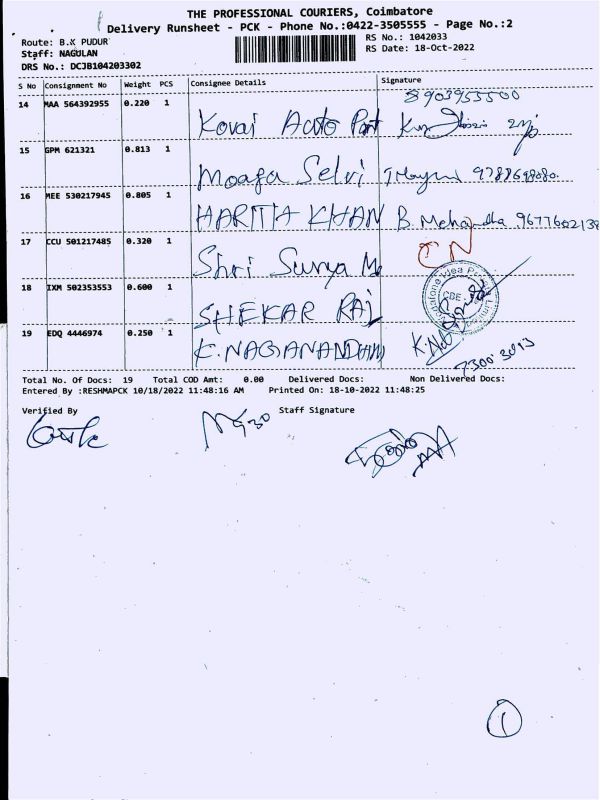 THE PROFESSIONAL COURIERS, Coimbatore
Delivery Runsheet - PCK - Phone No.:0422-3505555 - Page No.:2
Route: B.K PUDUR
RS No.: 1042033
Staff: NAGULAN
RS Date: 18-Oct-2022
DRS No.: DCJB104203302
S No Consignment No Weight PCS Consignee Details Signature
14 MAA 564392955 0.220 1
8903953500
Kovai Auto Part
15 GPM 621321 0.813 1
Selvi
16 MEE 530217945 0.805 1
HARITH KHAN B.
17 CCU 501217485 0.320 1
Shri Surya M
CN
18 IXM 502353553 0.600 1
SHEKAR RAJ
19 EDQ 4446974 0.250 1
K. NAGANANDHAN
Total No. Of Docs: 19 Total COD Amt: 0.00 Delivered Docs: Non Delivered Docs:
Entered By :RESHMAPCK 10/18/2022 11:48:16 AM Printed On: 18-10-2022 11:48:25
Verified By Staff Signature
1